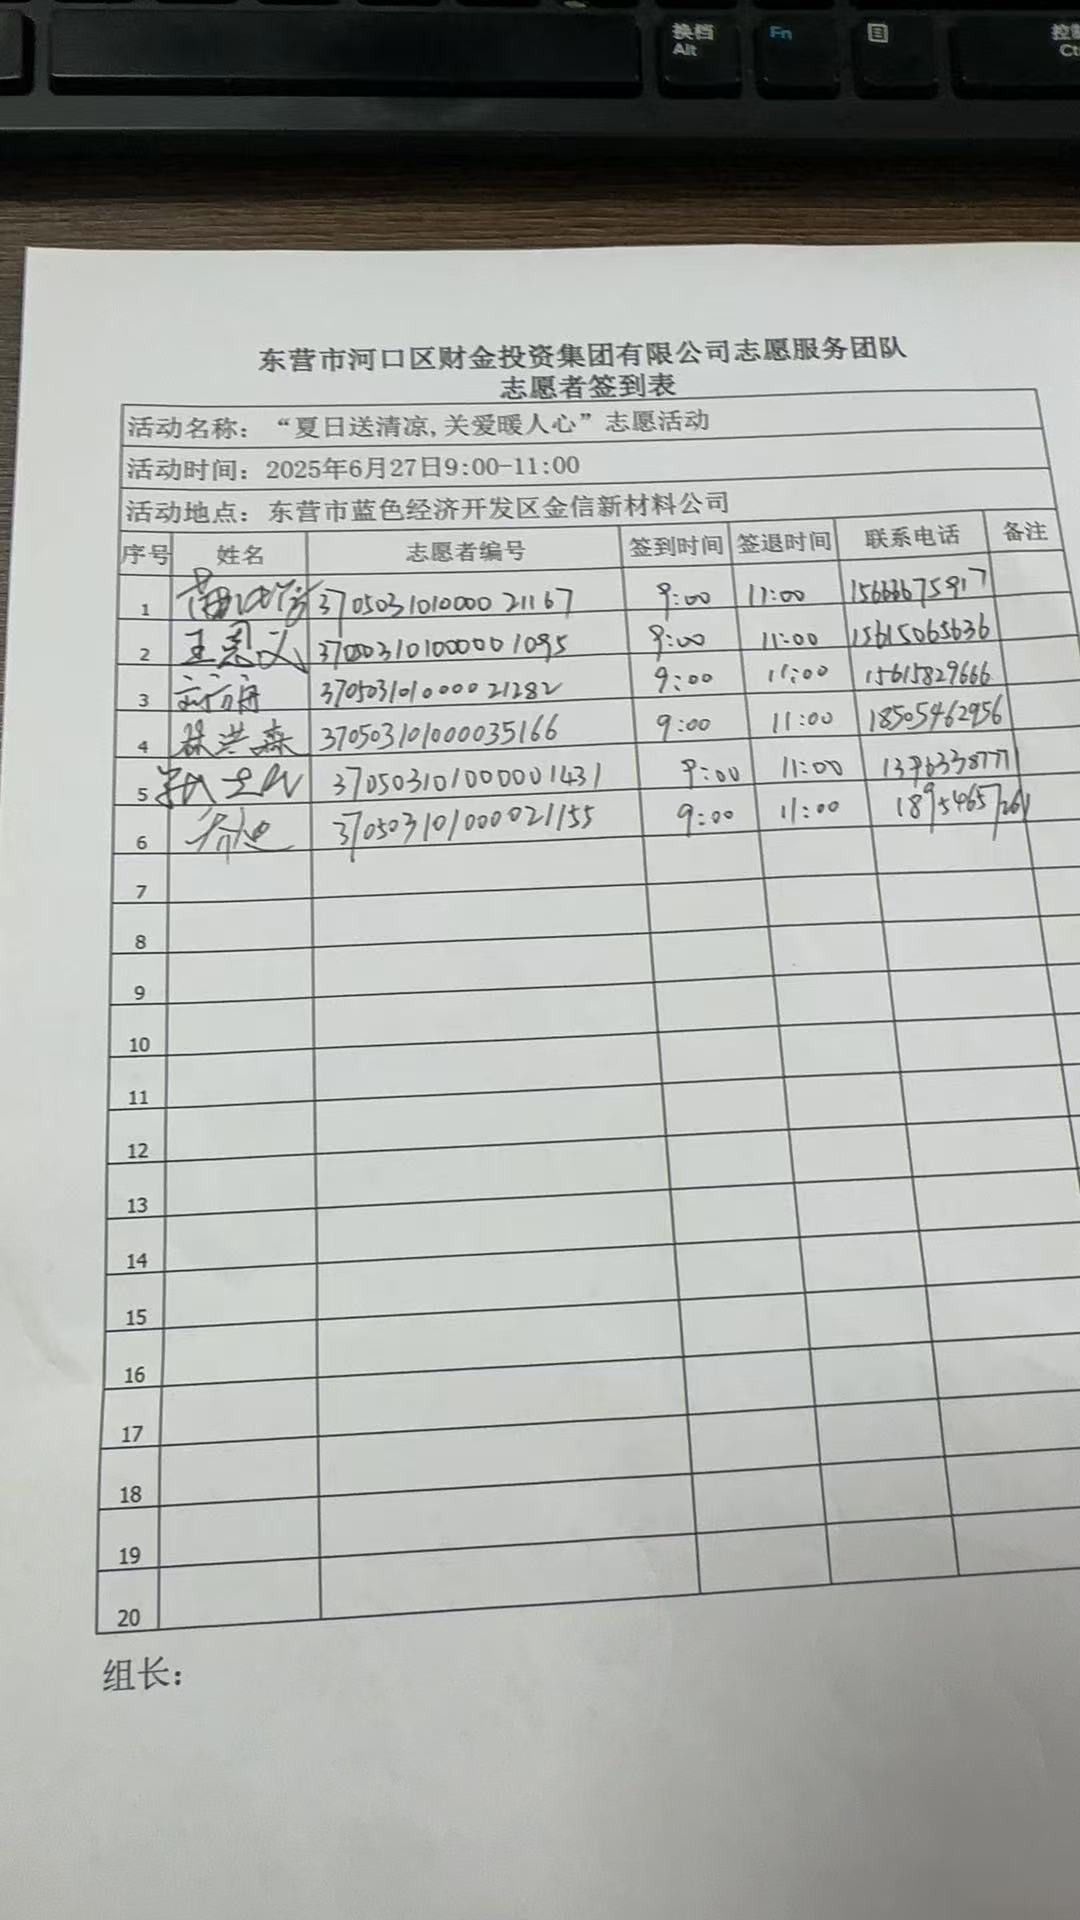 换档
Alt
Fn
控制
Ct
东营市河口区财金投资集团有限公司志愿服务团队
志愿者签到表
活动名称：“夏日送清凉,关爱暖人心”志愿活动
活动时间：2025年6月27日9:00-11:00
活动地点：东营市蓝色经济开发区金信新材料公司
序号 姓名 志愿者编号 签到时间 签退时间 联系电话 备注
1 370503101000021167 9:00 11:00 15666675917
2 王 3700031010000001095 9:00 11:00 15615065636
3 370503101000021282 9:00 11:00 15615829666
4 徐洪森 37050310100035166 9:00 11:00 18505462956
5 370503101000001431 9:00 11:00
6 370503101000021155 9:00 11:00
7
8
9
10
11
12
13
14
15
16
17
18
19
20
组长：